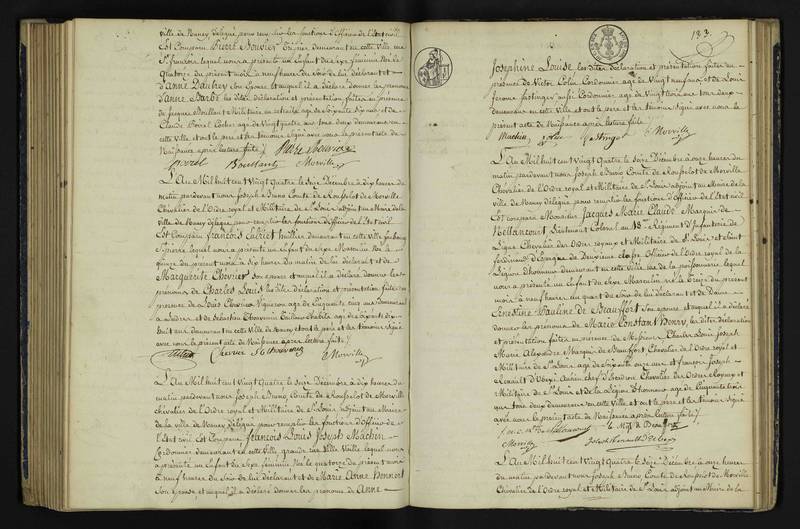 ville de Nancy délégué pour remplir les fonctions d'Officier de l'Etat civil
Est Comparu Pierre Bouvier demeurant en cette ville rue
St. francois lequel nous a présenté un Enfant du sexe féminin Née le
quatorze du présent mois à neuf heures du soir de lui déclarant et
d'Anne Daufrey son Epouse et auquel il a déclaré donner les prénoms
d'anne Barbe les dites déclaration et présentation faites en présence
de Jacques Bouillant Militaire en retraite agé de soixante dix ans et de
Claude Poirel agé de vingt quatre ans tous deux demeurans en
cette ville et ont le pere et les témoins signé avec nous le présent acte de
Naissance après lecture faite /.
Morville
L'An Mil huit cent Vingt Quatre le Seize Décembre à dix heures du
matin pardevant nous Joseph Bruno Comte de Rousselot de Morville
Chevalier de l'Ordre royal et Militaire de St. Louis adjoint au Maire de la
ville de Nancy délégué pour remplir les fonctions d'Officier de l'Etat civil
Est Comparu François Chévrier huillier demeurant en cette ville faubourg
lequel nous a présenté un Enfant du Sexe Masculin Né le
quinze du présent mois à dix heures du matin de lui déclarant et de
Marguerite Chevrier son epouse et auquel il a déclaré donner les
prénoms de Charles Louis les dites déclaration et présentation faites en
présence de Louis Vigneron agé de Cinquante cinq ans demeurant
à et de Sébastien Thouvenin agé de quarante dix
huit ans demeurant en cette Ville de Nancy et ont le pere et les témoins signé
avec nous le présent acte de Naissance après lecture faite /.
Morville
L'An Mil huit cent Vingt Quatre le Seize Décembre à dix heures du
matin pardevant nous Joseph Bruno Comte de Rousselot de Morville
chevalier de l'Ordre royal et Militaire de St. Louis adjoint au Maire
de la ville de Nancy délégué pour remplir les fonctions d'Officier de
l'Etat civil Est Comparu François Louis Joseph Machin
Cordonnier demeurant en cette Ville grande rue Ville Vieille lequel nous
a présenté un Enfant du Sexe féminin Née le quatorze du présent mois
à neuf heures du soir de lui déclarant et de Marie Anne Honnert
son épouse et auquel il a déclaré donner les prénoms de Anne
183.
Josephine Louise les dites déclaration et présentation faites en
présence de Victor Colin Cordonnier agé de Vingt neuf ans et de Louis
Jerome fastinger aussi Cordonnier agé de Vingt trois ans tous deux
demeurans en cette Ville et ont le pere et les témoins signé avec nous le
présent acte de Naissance après lecture faite /.
Machin Colin fastinger Morville
L'An Mil huit cent Vingt Quatre le Seize Décembre à onze heures du
matin pardevant nous Joseph Bruno Comte de Rousselot de Morville
Chevalier de l'Ordre royal et Militaire de St. Louis adjoint au Maire de la
ville de Nancy délégué pour remplir les fonctions d'Officier de l'Etat civil
Est comparu Monsieur Jacques Marie Claude Marquis de
Hellancourt Lieutenant Colonel au 13e Régiment d'Infanterie de
Ligne Chevalier des Ordres royaux et Militaire de St. Louis et de Saint
ferdinand d'Espagne de Deuxieme classe Officier de l'Ordre royal de la
Légion d'honneur demeurant en cette ville rue de la poissonnerie lequel
nous a présenté un Enfant du Sexe Masculin né le Treize du présent
mois à neuf heures un quart du soir de lui déclarant et de Dame
Ernestine Pauline de Beauffort son épouse et auquel il a déclaré
donner les prénoms de Marie Constant Henry, les dites déclaration
et présentation faites en présence de Messieurs Charles Louis Joseph
Marie Alexandre Marquis de Beauffort Chevalier de l'Ordre royal et
Militaire de St. Louis agé de soixante onze ans et françois Joseph
Renault d'Ubexi ancien chef d'Escadron Chevalier des Ordres royaux et
Militaire de St. Louis et de la Légion d'honneur agé de Cinquante trois
ans tous deux demeurans en cette Ville et ont le pere et les témoins signé
avec nous le présent acte de Naissance après lecture faite /.
Le Mis de Beauffort
Morville Joseph Renault d'Ubexi
L'An Mil huit cent Vingt Quatre le Seize Décembre à onze heures
du matin pardevant nous Joseph Bruno Comte de Rousselot de Morville
Chevalier de l'Ordre royal et Militaire de St. Louis adjoint au Maire de la